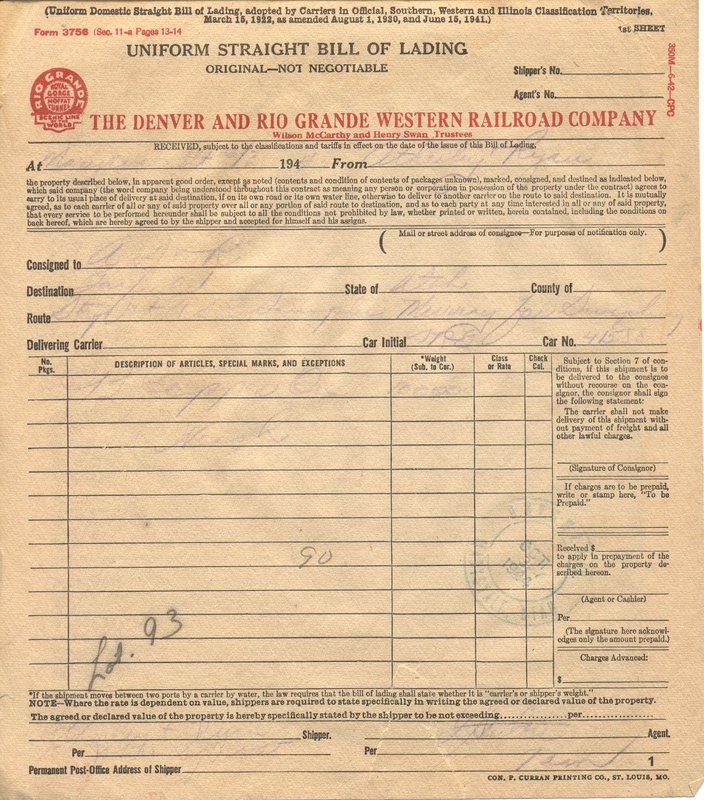 (Uniform Domestic Straight Bill of Lading, adopted by Carriers in Official, Southern, Western and Illinois Classification Territories,
March 15, 1922, as amended August 1, 1930, and June 15, 1941.)
Form 3756 (Sec. 11-a Pages 13-14
1st SHEET
UNIFORM STRAIGHT BILL OF LADING
ORIGINAL—NOT NEGOTIABLE
Shipper's No.
Agent's No.
350M—6-42—CPC
RIO GRANDE
ROYAL
GORGE
MOFFAT
TUNNEL
SCENIC LINE
OF THE
WORLD
THE DENVER AND RIO GRANDE WESTERN RAILROAD COMPANY
Wilson McCarthy and Henry Swan Trustees
RECEIVED, subject to the classifications and tariffs in effect on the date of the issue of this Bill of Lading,
At 194 From
the property described below, in apparent good order, except as noted (contents and condition of contents of packages unknown), marked, consigned, and destined as indicated below,
which said company (the word company being understood throughout this contract as meaning any person or corporation in possession of the property under the contract) agrees to
carry to its usual place of delivery at said destination, if on its own road or its own water line, otherwise to deliver to another carrier on the route to said destination. It is mutually
agreed, as to each carrier of all or any of said property over all or any portion of said route to destination, and as to each party at any time interested in all or any of said property,
that every service to be performed hereunder shall be subject to all the conditions not prohibited by law, whether printed or written, herein contained, including the conditions on
back hereof, which are hereby agreed to by the shipper and accepted for himself and his assigns.
(Mail or street address of consignee—For purposes of notification only.)
Consigned to
Destination State of Utah County of
Route
Delivering Carrier Car Initial Car No.
No.
Pkgs.
DESCRIPTION OF ARTICLES, SPECIAL MARKS, AND EXCEPTIONS
*Weight
(Sub. to Cor.)
Class
or Rate
Check
Col.
Subject to Section 7 of con-
ditions, if this shipment is to
be delivered to the consignee
without recourse on the con-
signor, the consignor shall sign
the following statement:
The carrier shall not make
delivery of this shipment with-
out payment of freight and all
other lawful charges.
(Signature of Consignor)
If charges are to be prepaid,
write or stamp here, "To be
Prepaid."
90
Received $
to apply in prepayment of the
charges on the property de-
scribed hereon.
(Agent or Cashier)
Per
(The signature here acknowl-
edges only the amount prepaid.)
Lot. 93
Charges Advanced:
$
*If the shipment moves between two ports by a carrier by water, the law requires that the bill of lading shall state whether it is "carrier's or shipper's weight."
NOTE—Where the rate is dependent on value, shippers are required to state specifically in writing the agreed or declared value of the property.
The agreed or declared value of the property is hereby specifically stated by the shipper to be not exceeding per
Shipper. Agent.
Per Per
1
Permanent Post-Office Address of Shipper
CON. P. CURRAN PRINTING CO., ST. LOUIS, MO.